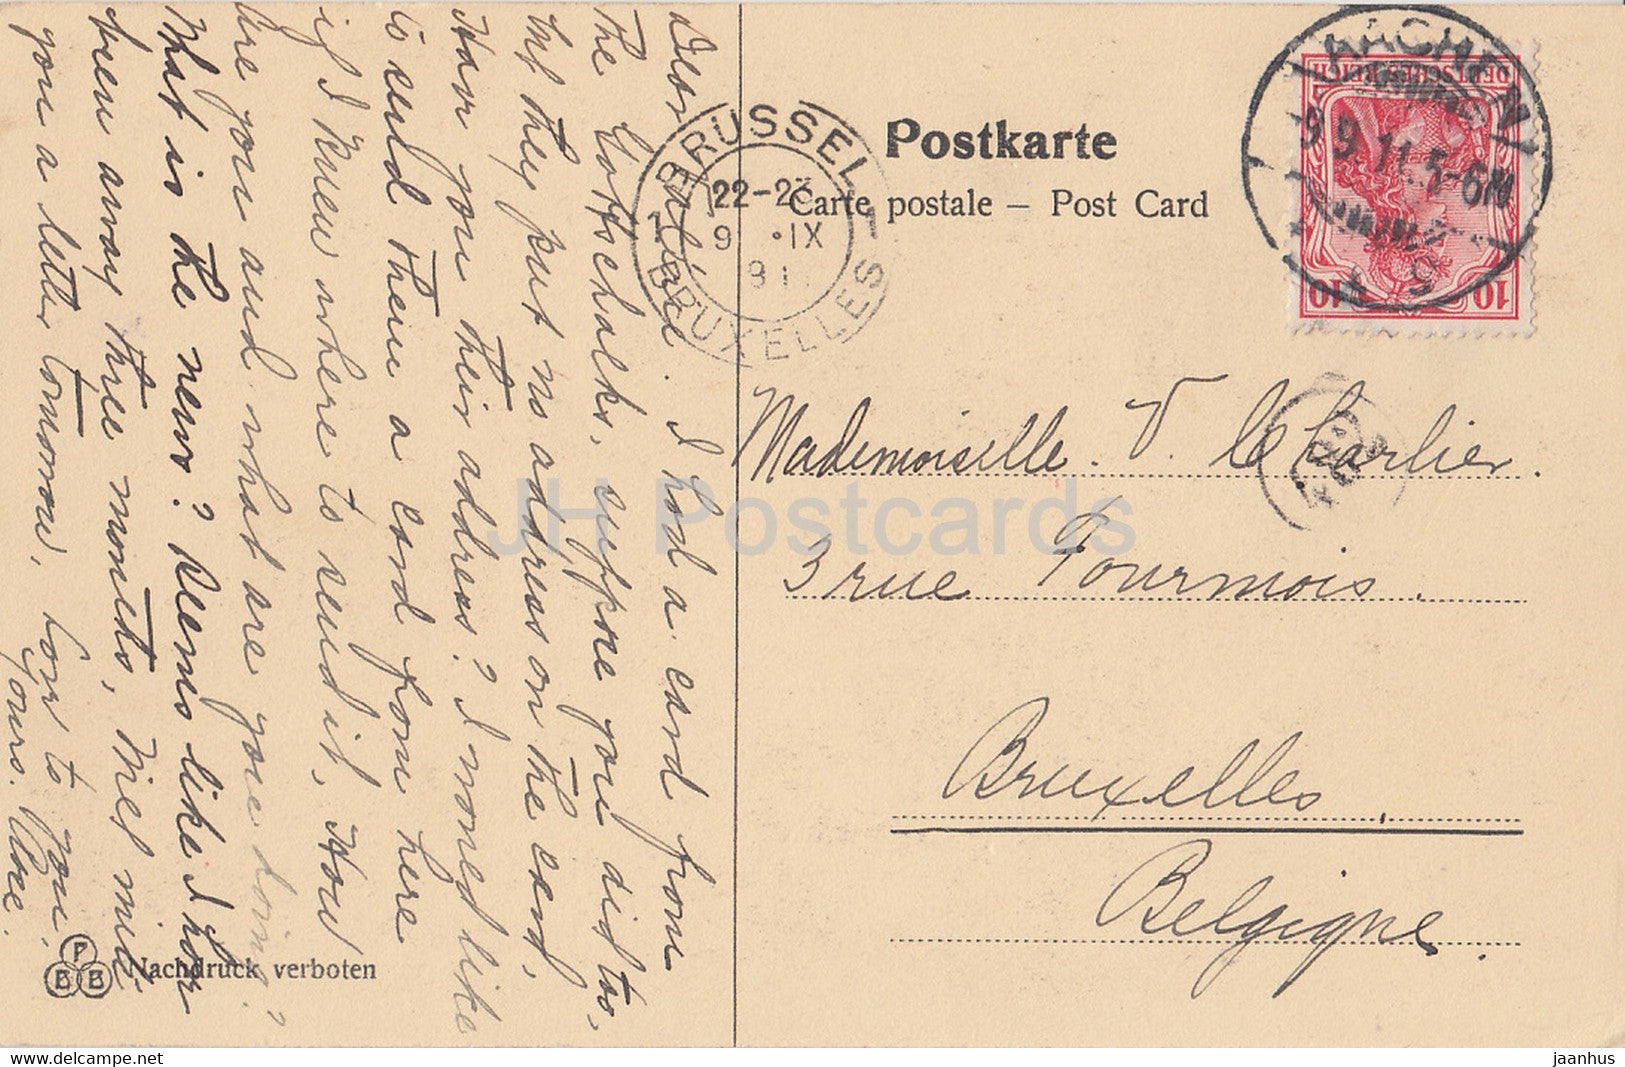 Dear
I had a card from
the Gottschalks, suppose you did too,
but they put no address on the card,
Have you their address? I would like
to send them a card from here
if I knew where to send it, How
are you and what are you doing?
What is the news? Seems like I hav
been away three months, Will mail
you a letter tomorrow, Love to you.
Yours.
Postkarte
Carte postale – Post Card
BRÜSSEL
22-23
9 IX
BRUXELLES
AACHEN
9.9.11.5-6N
DEUTSCHES REICH
10 10
Mademoiselle. V. le Carlier.
3 rue Fourmois.
Bruxelles,
Belgique
Nachdruck verboten
P
B B
JH Postcards
www.delcampe.net
jaanhus